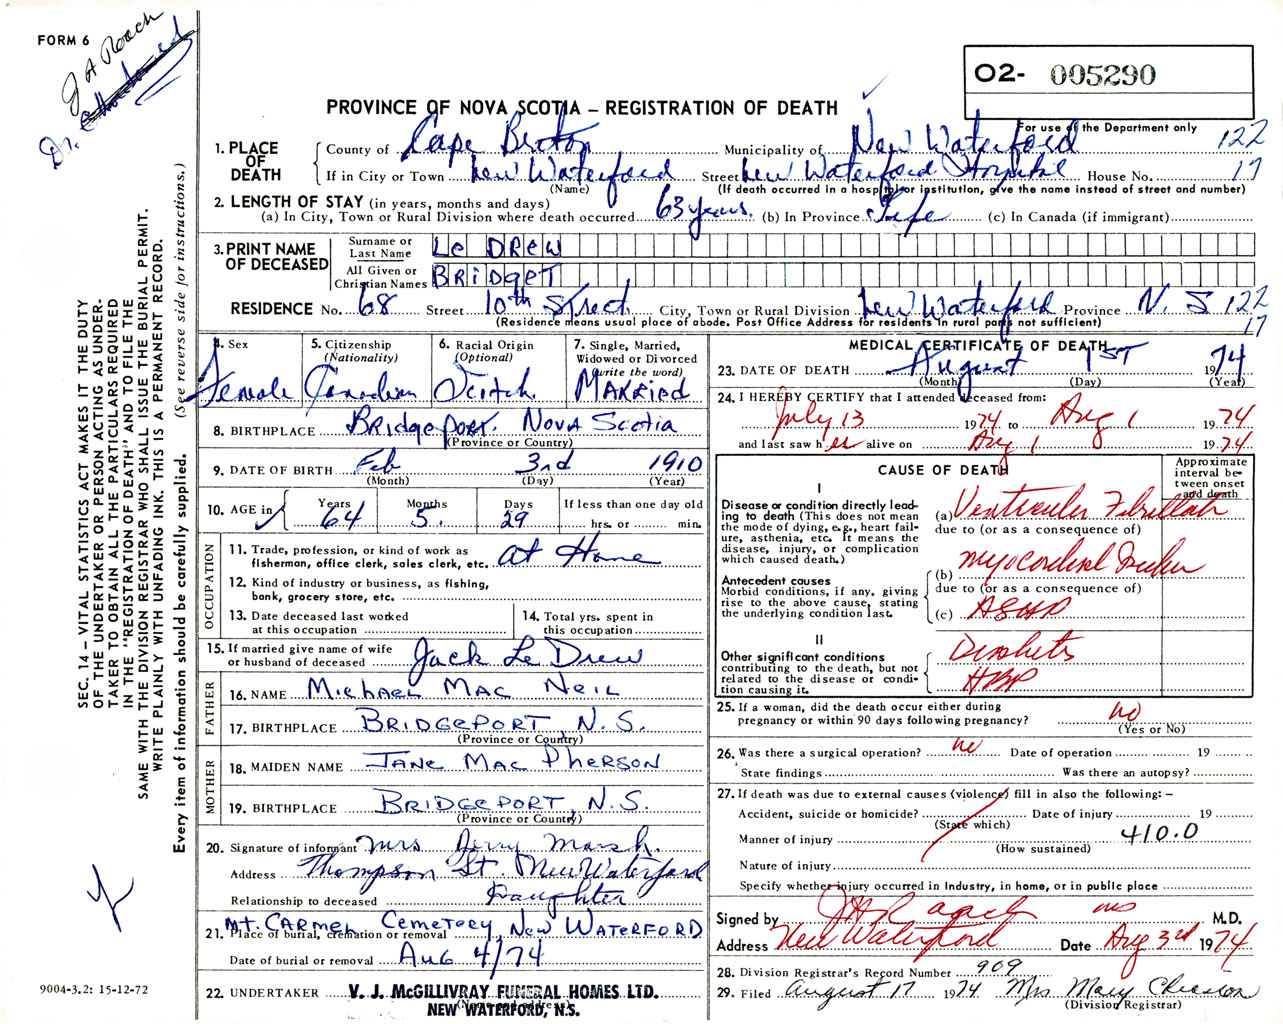 FORM 6
J A Roach
Dr.
O2- 005290
PROVINCE OF NOVA SCOTIA – REGISTRATION OF DEATH
For use of the Department only
1. PLACE OF DEATH
County of Cape Breton Municipality of New Waterford 122
If in City or Town New Waterford Street New Waterford Hospital House No. 17
(Name) (If death occurred in a hospital or institution, give the name instead of street and number)
2. LENGTH OF STAY (in years, months and days)
(a) In City, Town or Rural Division where death occurred 63 years. (b) In Province Life (c) In Canada (if immigrant)
3. PRINT NAME OF DECEASED
Surname or Last Name Le DREW
All Given or Christian Names BRIDGET
RESIDENCE No. 68 Street 10th Street City, Town or Rural Division New Waterford Province N. S 122
(Residence means usual place of abode. Post Office Address for residents in rural parts not sufficient) 17
4. Sex Female
5. Citizenship (Nationality) Canadian
6. Racial Origin (Optional) Scitch
7. Single, Married, Widowed or Divorced (write the word) MARRied
8. BIRTHPLACE BRidgePORT. NOVA Scotia
(Province or Country)
9. DATE OF BIRTH Feb 3rd 1910
(Month) (Day) (Year)
10. AGE in Years 64 Months 5. Days 29 If less than one day old hrs. or min.
OCCUPATION
11. Trade, profession, or kind of work as fisherman, office clerk, sales clerk, etc. at Home
12. Kind of industry or business, as fishing, bank, grocery store, etc.
13. Date deceased last worked at this occupation
14. Total yrs. spent in this occupation
15. If married give name of wife or husband of deceased Jack Le Drew
FATHER
16. NAME MicHAel MAC NeiL
17. BIRTHPLACE BRIDGEPORT N.S.
(Province or Country)
MOTHER
18. MAIDEN NAME JANE MAC PHERSON
19. BIRTHPLACE BRIDGEPORT, N.S.
(Province or Country)
20. Signature of informant Mrs Jerry Marsh.
Address Thompson St. New Waterford
Relationship to deceased Daughter
21. Mt. CARMEL Cemetery New WATERFORD
Place of burial, cremation or removal
Date of burial or removal AUG 4/74
22. UNDERTAKER V. J. McGILLIVRAY FUNERAL HOMES LTD.
(Name and address)
NEW WATERFORD, N.S.
MEDICAL CERTIFICATE OF DEATH
23. DATE OF DEATH August 1ST 1974
(Month) (Day) (Year)
24. I HEREBY CERTIFY that I attended deceased from:
July 13 1974 to Aug 1 1974
and last saw her alive on Aug 1 1974
CAUSE OF DEATH
Approximate interval between onset and death
I
Disease or condition directly leading to death (This does not mean the mode of dying, e.g., heart failure, asthenia, etc. It means the disease, injury, or complication which caused death.)
(a) Ventricular Fibrillatn
due to (or as a consequence of)
Antecedent causes
Morbid conditions, if any, giving rise to the above cause, stating the underlying condition last.
(b) Myocardial
due to (or as a consequence of)
(c) ASHD
II
Other significant conditions contributing to the death, but not related to the disease or condition causing it.
Diabetes
HBP
25. If a woman, did the death occur either during pregnancy or within 90 days following pregnancy? no
(Yes or No)
26. Was there a surgical operation? no Date of operation 19
State findings Was there an autopsy?
27. If death was due to external causes (violence) fill in also the following: –
Accident, suicide or homicide? Date of injury 19
(State which)
Manner of injury 410.0
(How sustained)
Nature of injury
Specify whether injury occurred in Industry, in home, or in public place
Signed by J A Roach MD M.D.
Address New Waterford Date Aug 3rd 1974
28. Division Registrar's Record Number 909
29. Filed August 17 1974 Mrs Mary
(Division Registrar)
SEC. 14 – VITAL STATISTICS ACT MAKES IT THE DUTY
OF THE UNDERTAKER OR PERSON ACTING AS UNDER-
TAKER TO OBTAIN ALL THE PARTICULARS REQUIRED
IN THE "REGISTRATION OF DEATH" AND TO FILE THE
SAME WITH THE DIVISION REGISTRAR WHO SHALL ISSUE THE BURIAL PERMIT.
WRITE PLAINLY WITH UNFADING INK. THIS IS A PERMANENT RECORD.
Every item of information should be carefully supplied. (See reverse side for instructions.)
9004-3.2: 15-12-72